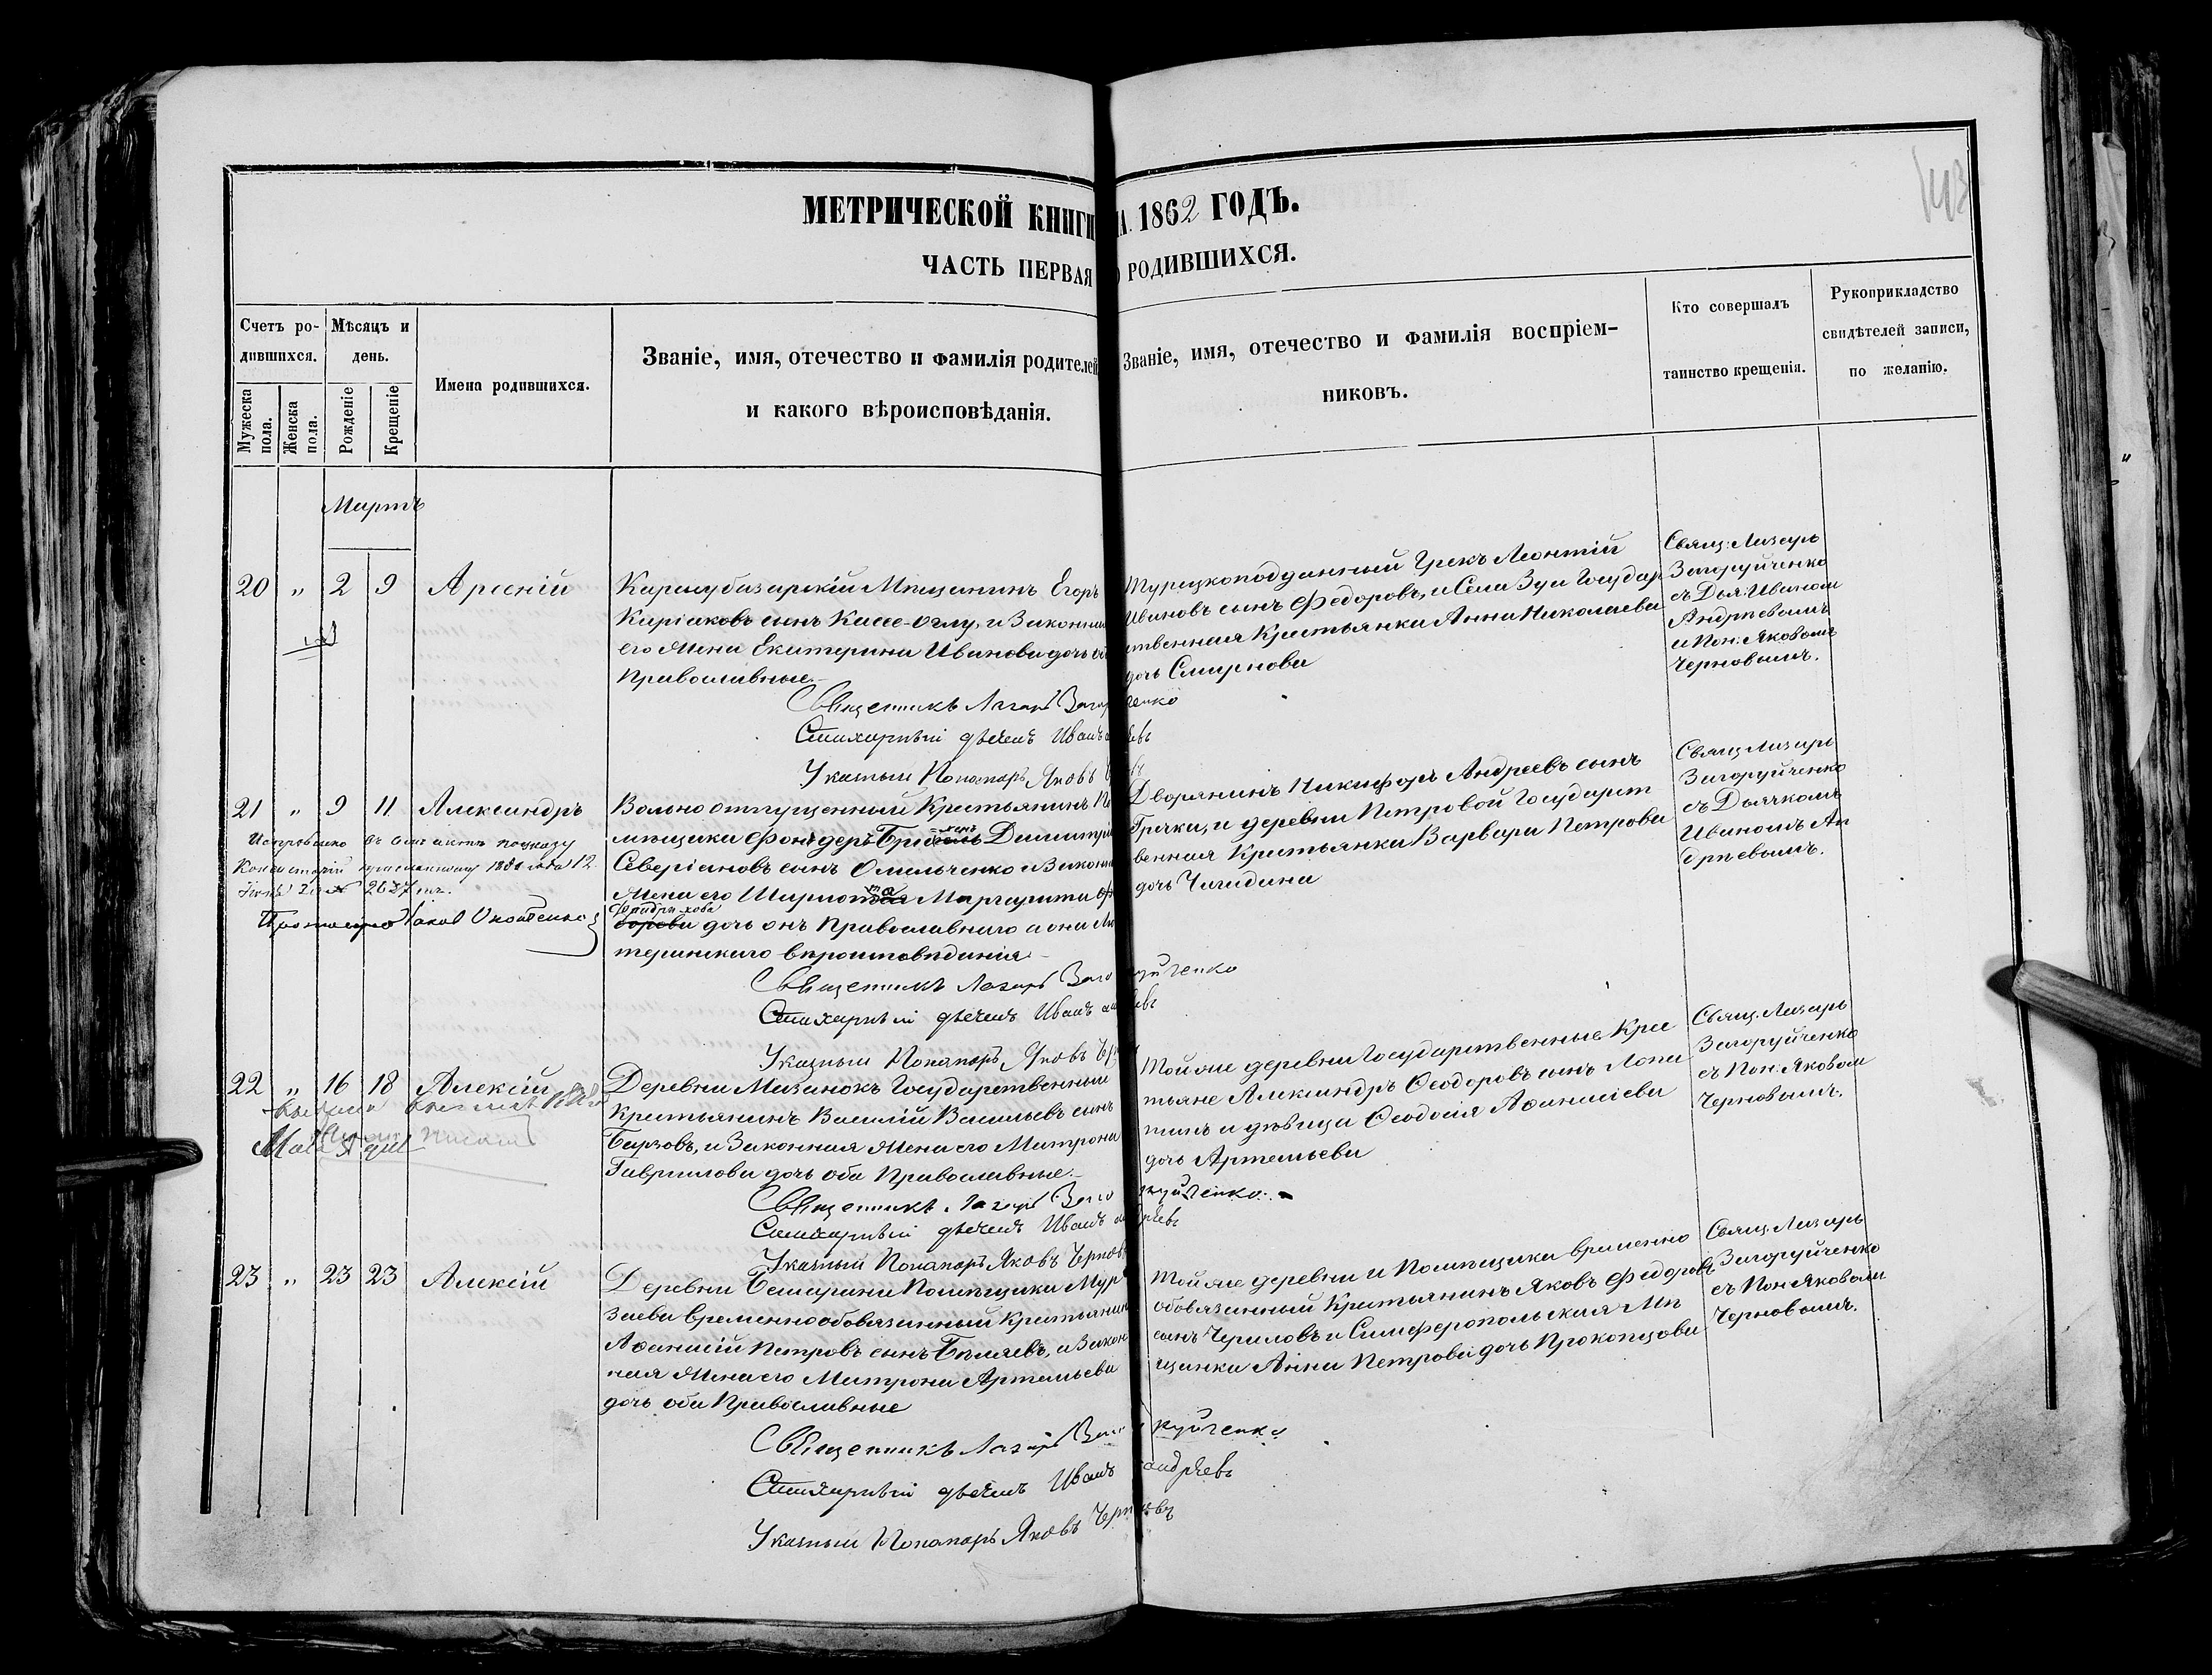 МЕТРИЧЕСКОЙ КНИГИ
А 1862 ГОДЪ.
143
ЧАСТЬ ПЕРВАЯ
РОДИВШИХСЯ.
Счетъ ро-
дившихся.
Мужеска
пола.
Женска
пола.
Мѣсяцъ и
день.
Рожденіе
Крещеніе
Имена родившихся.
Званіе, имя, отечество и фамилія родителей
и какого вѣроисповѣданія.
Званіе, имя, отечество и фамилія воспріем-
никовъ.
Кто совершалъ
таинство крещенія.
Рукоприкладство
свидѣтелей записи,
по желанію.
Мартъ
20 " 2 9 Арсеній
Карасубазарскій Мѣщанинъ Егоръ
Киріаковъ сынъ Кассе-Оглу, и Законная
его Жена Екатерина Иванова дочь оба
Православные.
Турецкоподданный Грекъ Леонтій
Ивановъ сынъ Федоровъ, и Села Зуи Государ
ственная Крестьянка Анна Николаева
дочь Смирнова
Свящ: Лазарь
Загоруйченко
съ Дья: Иваном
Андреевымъ
и Пон: Яковомъ
Черновымъ.
Священникъ Лазарь Загоруйченко
Стихарный дьячекъ Иванъ
Указный Пономарь Яковъ
21 " 9 11 Александръ
Вольноотпущенный Крестьянинъ По
мѣщика Фондеръ Бри Димитрій
Северіановъ сынъ Омельченко и Законная
Жена его Шарлотта Маргарита
Фридрихова
дочь онъ Православнаго а она Лю
теранскаго вѣроисповѣданія
Исправлено въ семъ актѣ по указу
Консисторіи
№ 2637
Протоіерей
Дворянинъ Никифоръ Андреевъ сынъ
Гречка, и деревни Петровой Государст
венная Крестьянка Варвара Петрова
дочь Чигидина
Свящ Лазарь
Загоруйченко
съ Дьячкомъ
Иваномъ Ан
дреевымъ.
Священникъ Лазарь Загоруйченко
Стихарный дьячекъ Иванъ
Указный Пономарь Яковъ
22 " 16 18 Алексій
Деревни Мазанокъ Государственный
Крестьянинъ Василій Васильевъ сынъ
Барзовъ, и Законная Жена его Матрона
Гаврилова дочь оба Православные.
Той же деревни Государственные Крес
тьяне Александръ Ѳеодоровъ сынъ Лопа
тинъ и дѣвица Ѳеодосія Аѳанасіева
дочь Артемьева
Свящ. Лазарь
Загоруйченко
съ Пон: Яковом
Черновымъ.
Священникъ Лазарь Загоруйченко.
Стихарный дьячекъ Иванъ
Указный Пономарь Яковъ Черновъ
23 " 23 23 Алексій
Деревни Бешарани Помѣщика Мур
заева временнообовязанный Крестьянинъ
Аѳанасій Петровъ сынъ Бѣляевъ, и Закон
ная Жена его Матрона Артемьева
дочь оба Православные
Той же деревни и Помѣщика временно
обовязанный Крестьянинъ Яковъ Федоровъ
сынъ Чериловъ и Симферопольская Мѣ
щанка Анна Петрова дочь Прокопцова
Свящ. Лазарь
Загоруйченко
съ Пон Яковомъ
Черновымъ.
Священникъ Лазарь Загоруйченко
Стихарный дьячекъ Иванъ Андреевъ
Указный Пономарь Яковъ Черновъ